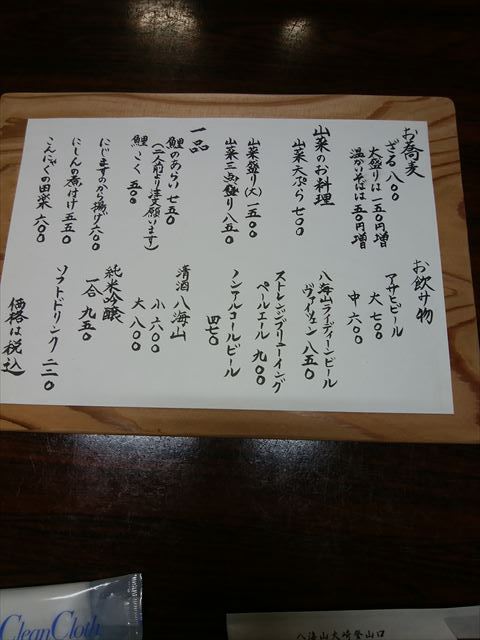 お蕎麦
ざる 八〇〇
大盛りは 一五〇円増
温かいそばは 五〇円増
山菜のお料理
山菜天ぷら 七〇〇
山菜盛り(大) 一五〇〇
山菜三点盛り 八五〇
一品
鯉のあらい 七五〇
(二人前より注文願います)
鯉こく 五〇〇
にじますのから揚げ 六〇〇
にしんの煮付け 五五〇
こんにゃくの田楽 六〇〇
お飲み物
アサヒビール
大 七〇〇
中 六〇〇
八海山ライディーンビール
ヴァイツェン 八五〇
ストレンジブリューイング
ペールエール 九〇〇
ノンアルコールビール
四七〇
清酒 八海山
小 六〇〇
大 八〇〇
純米吟醸
一合 九五〇
ソフトドリンク 二二〇
価格は税込
Clean Cloth
八海山大崎登山口